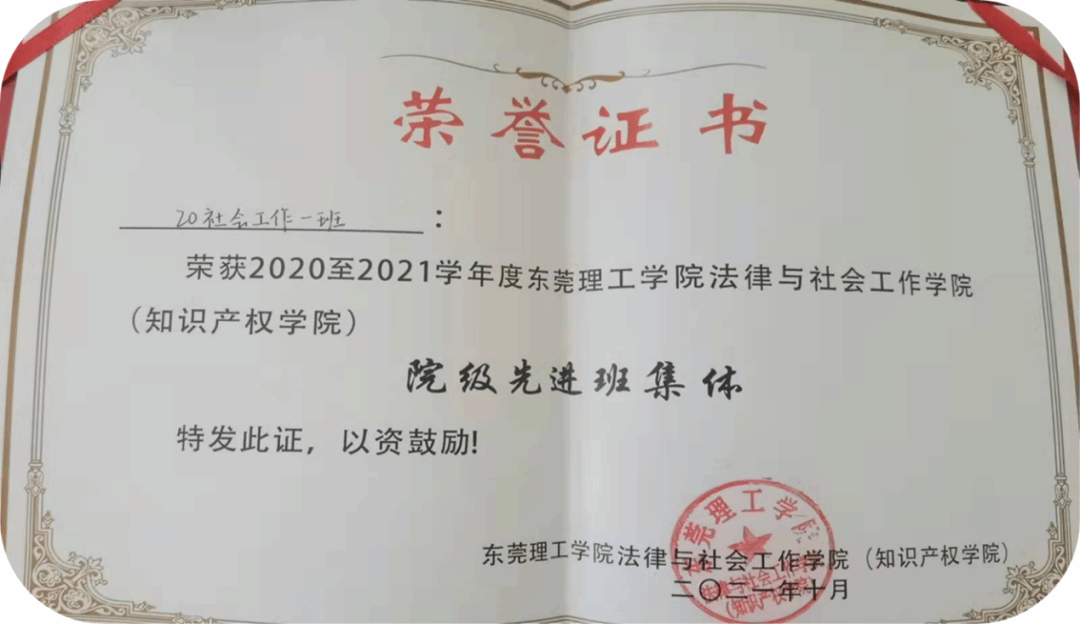 荣誉证书
20社会工作一班：
荣获2020至2021学年度东莞理工学院法律与社会工作学院
（知识产权学院）
院级先进班集体
特发此证，以资鼓励!
东莞理工学院
东莞理工学院法律与社会工作学院（知识产权学院）
二〇二一年十月
(知识产权学院)